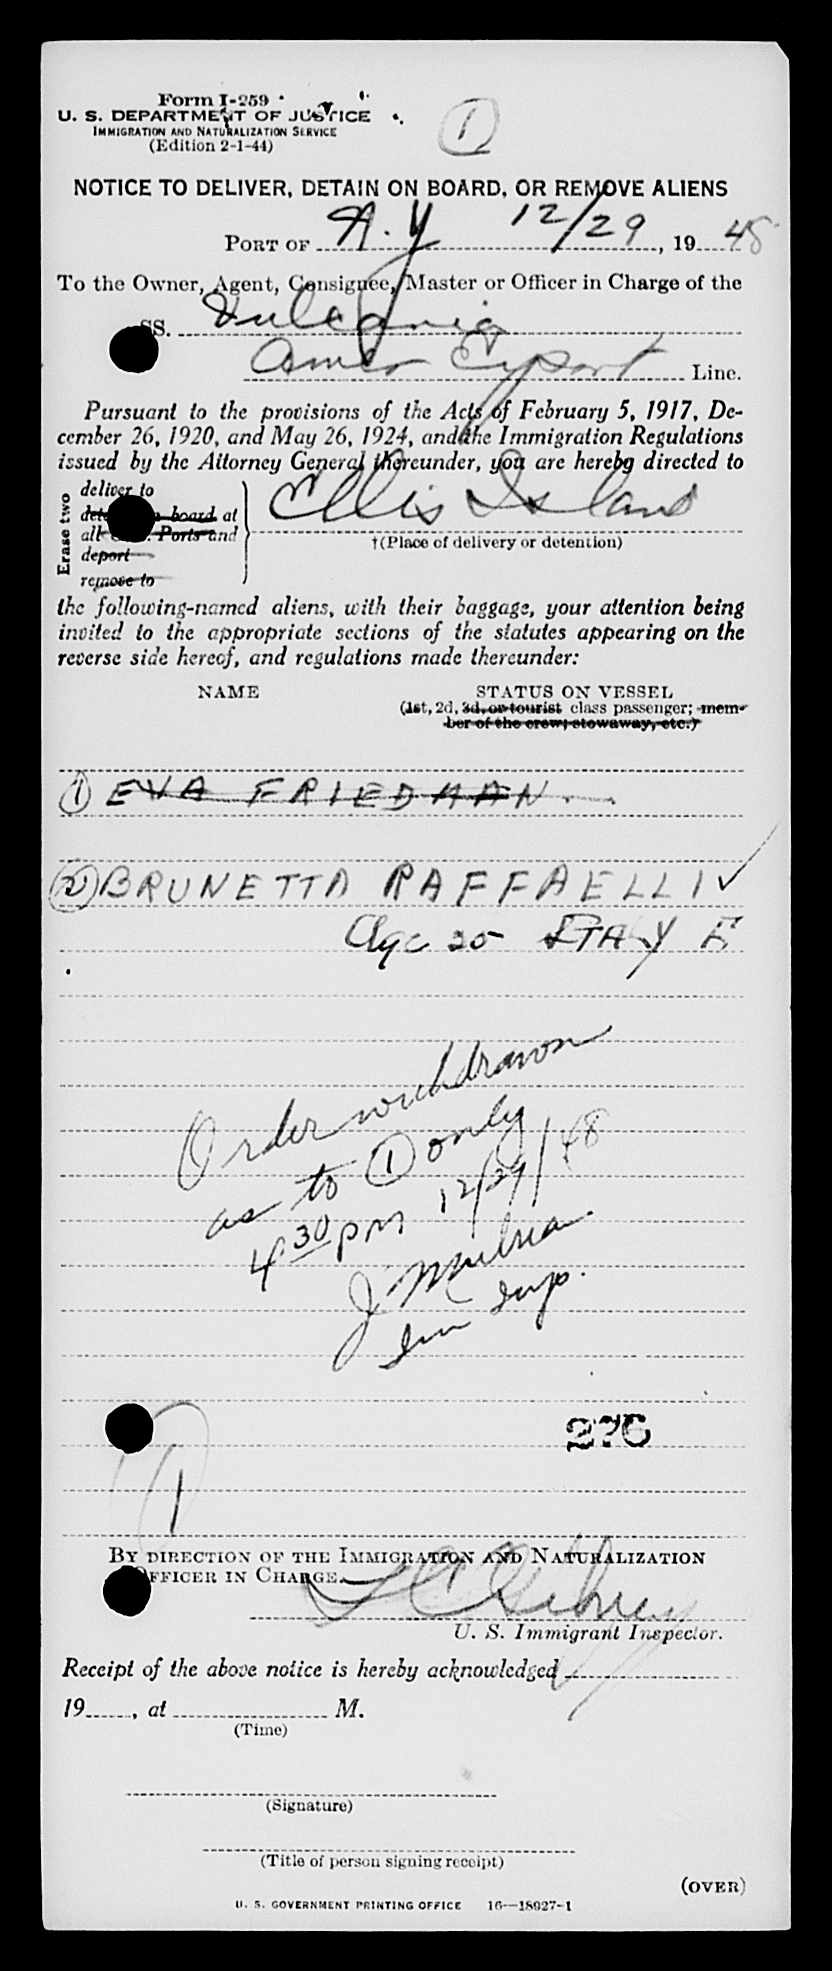 Form I-259
U. S. DEPARTMENT OF JUSTICE
IMMIGRATION AND NATURALIZATION SERVICE
(Edition 2-1-44)
1
NOTICE TO DELIVER, DETAIN ON BOARD, OR REMOVE ALIENS
PORT OF N.Y 12/29, 1948
To the Owner, Agent, Consignee, Master or Officer in Charge of the
SS. Vulcania
Amer Export Line.
Pursuant to the provisions of the Acts of February 5, 1917, De-
cember 26, 1920, and May 26, 1924, and the Immigration Regulations
issued by the Attorney General thereunder, you are hereby directed to
Erase two
deliver to
board at
all Ports and
deport
remove to
Ellis Island
†(Place of delivery or detention)
the following-named aliens, with their baggage, your attention being
invited to the appropriate sections of the statutes appearing on the
reverse side hereof, and regulations made thereunder:
NAME STATUS ON VESSEL
(1st, 2d, 3d, or tourist class passenger; mem-
ber of the crew; stowaway, etc.)
1 EVA FRIEDMAN.
2 BRUNETTA RAFFAELLI ✓
Age 25 ITALY
Order withdrawn
as to 1 only
4 30 pm 12/29/48
J.
Imm Insp.
276
1
BY DIRECTION OF THE IMMIGRATION AND NATURALIZATION
OFFICER IN CHARGE.
U. S. Immigrant Inspector.
Receipt of the above notice is hereby acknowledged
19, at M.
(Time)
(Signature)
(Title of person signing receipt)
(OVER)
U. S. GOVERNMENT PRINTING OFFICE 16—18927-1